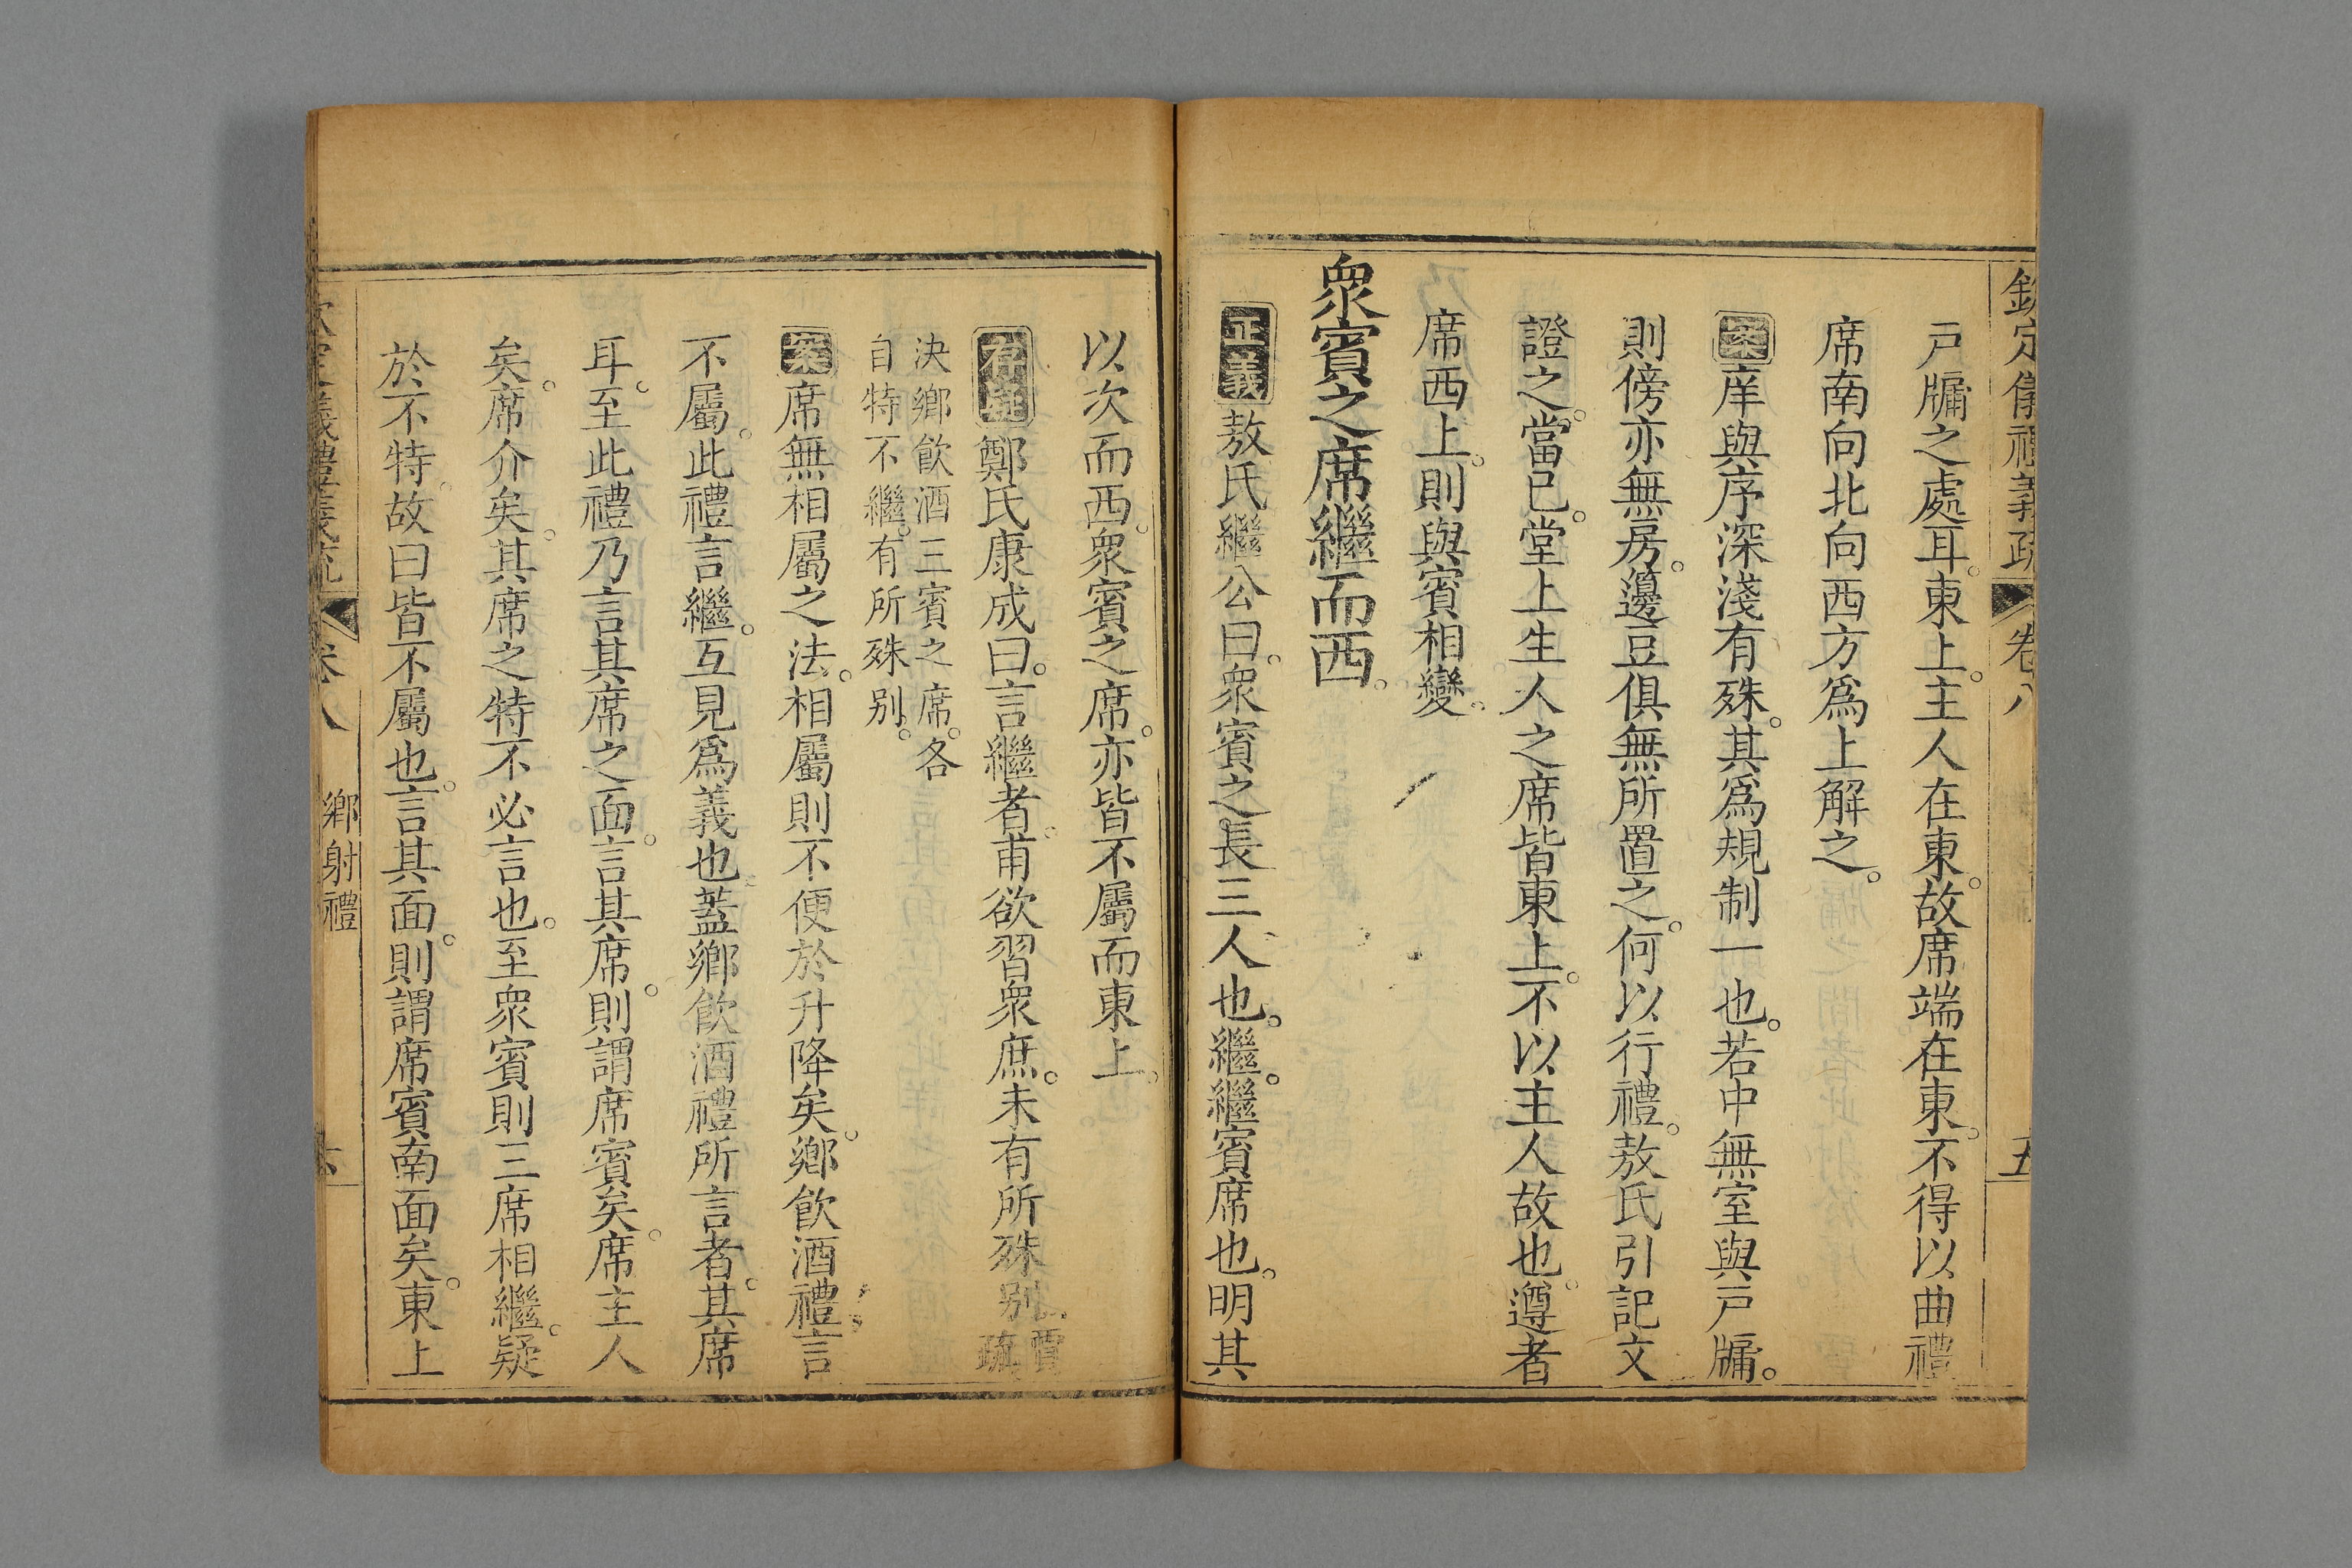 欽定儀禮義疏 卷八 五
戸牖之處耳。東上。主人在東。故席端在東。不得以曲禮
席南向北向西方爲上解之。
案庠與序深淺有殊。其爲規制一也。若中無室與戸牖。
則傍亦無房。籩豆俱無所置之。何以行禮。敖氏引記文
證之。當已。堂上生人之席皆東上。不以主人故也。遵者
席西上。則與賓相變。
眾賓之席繼而西。
正義敖氏繼公曰。眾賓之長三人也。繼。繼賓席也。明其
以次而西。眾賓之席。亦皆不屬而東上。
存疑鄭氏康成曰。言繼者。甫欲習眾庶。未有所殊别。賈疏
決鄉飲酒三賓之席。各
自特不繼。有所殊别。
案席無相屬之法。相屬則不便於升降矣。鄉飲酒禮言
不屬。此禮言繼。互見爲義也。蓋鄉飲酒禮所言者。其席
耳。至此禮乃言其席之面。言其席。則謂席賓矣。席主人
矣。席介矣。其席之特不必言也。至眾賓則三席相繼。疑
於不特。故曰皆不屬也。言其面。則謂席賓南面矣。東上
欽定儀禮義疏 卷八 鄉射禮 六